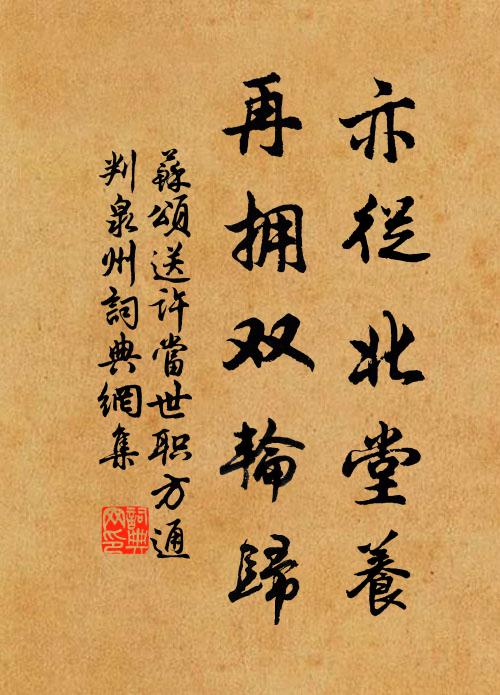 亦從北堂養
再拥双輪歸
蘇頌送许當世职方通
判泉州詞典網集